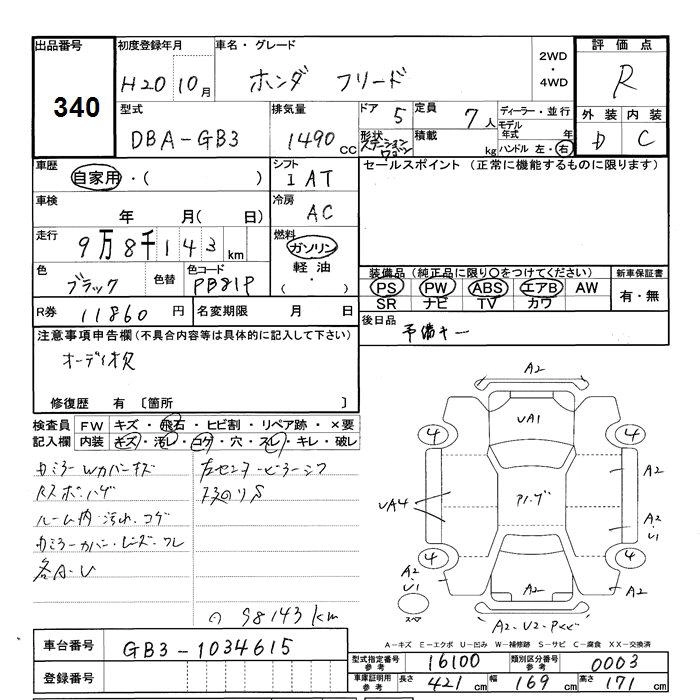 出品番号 初度登録年月 車名・グレード 2WD・4WD 評価点
340 H20 10月 ホンダ フリード R
型式 排気量 ドア 5 定員 7人 ディーラー・並行 外装 内装
DBA-GB3 1490cc 形状 ステーションワゴン 積載 kg モデル年式 年 ハンドル 左・右 D C
車歴 自家用・( ) シフト I AT セールスポイント (正常に機能するものに限ります)
車検 年 月( 日) 冷房 AC
走行 9万8千143km 燃料 ガソリン 軽油 ( ・ )
色 ブラック 色替 色コード PB81P
装備品(純正品に限り○をつけてください) 新車保証書
PS PW ABS エアB AW 有・無
SR ナビ TV カワ
R券 11860円 名変期限 月 日 後日品 予備キー
注意事項申告欄(不具合内容等は具体的に記入して下さい)
オーディオ欠
修復歴 有 〔箇所 〕
検査員記入欄 FW キズ・飛石・ヒビ割・リペア跡・×要
内装 キズ・汚レ・コゲ・穴・スレ・キレ・破レ
カミラーWカバーキズ 左センターピラーシワ
ルーム内・汚れ・コゲ
各A・U
98143km
A2
UA1
4 4
A2
UA4
A2・U1
4 4
A2・U1
A2
A2
スペア
車台番号 GB3-1034615
登録番号
A-キズ E-エクボ U-凹み W-補修跡 S-サビ C-腐食 XX-交換済
型式指定番号 参考 16100 類別区分番号 参考 0003
車庫証明用 参考 長さ 421cm 幅 169cm 高さ 171cm